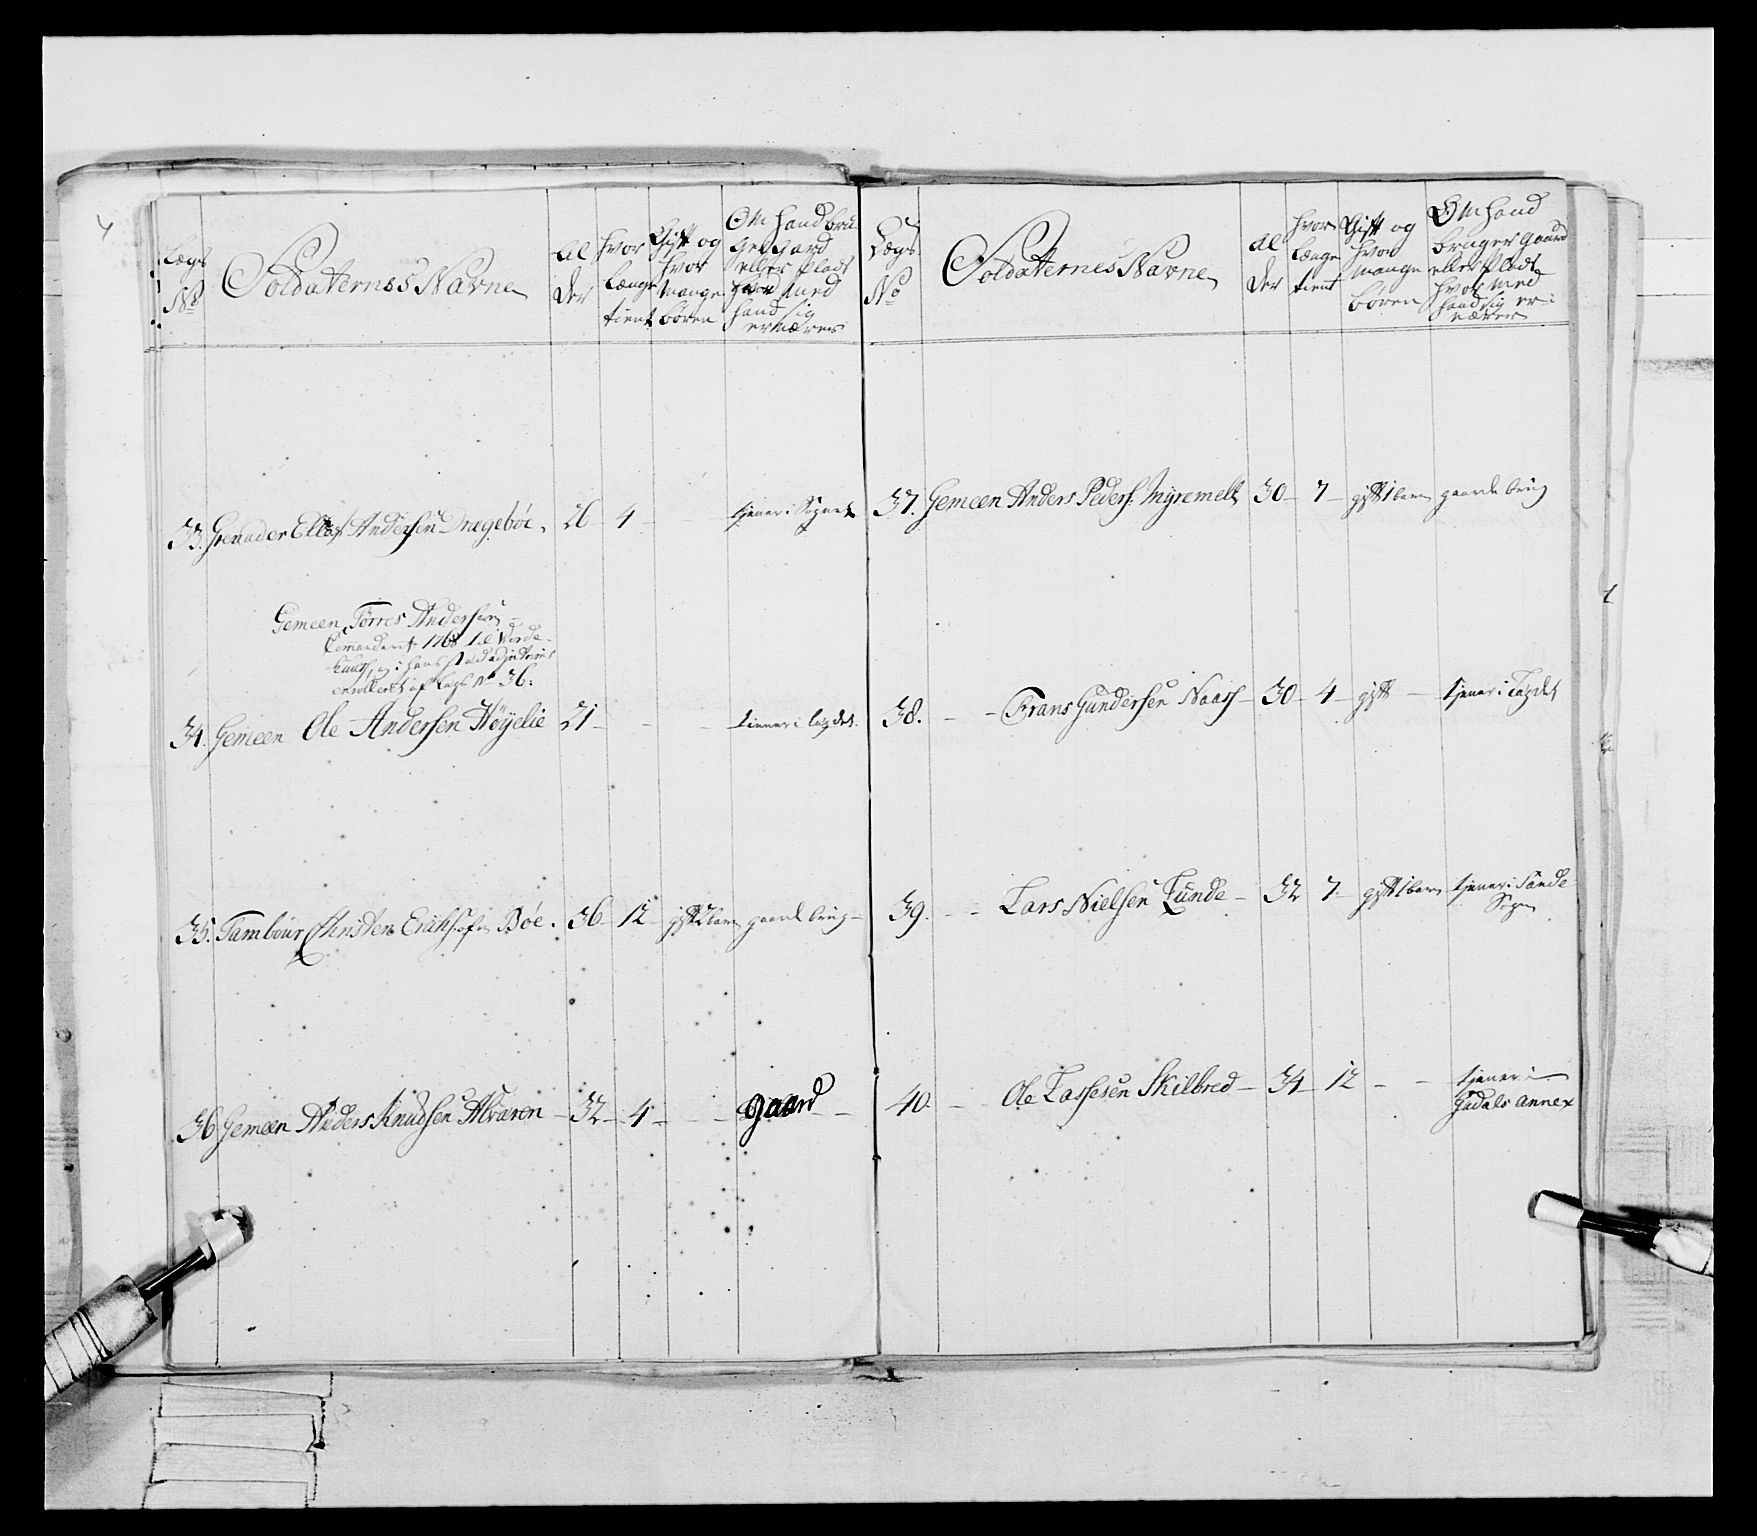 Lægs No
Soldaternes Navne
Al der
hvor længe tient
Gift og hvor mange børen
Om hand bru
ger Gaard
eller Plads
hvor med
hand sig
ernærer
33. Grenader Ellef Andersen Dragebøe. 26 4 tjener i Sognet
Gemeen Tørres Andersen
Comanderet 1768 til Varde-
enrolleret af Lægs No 36:
34. Gemeen Ole Andersen Høyelie 21 tiener i Legdet.
35. Tambour Christen Erichsøfn Bøe. 36 12 gift 2 barn gaards brug
36 Gemeen Anders Knudsen Alvaren 32 4 gaard
Lægs No
Soldaternes Navne
Al der
hvor længe tient
Gift og hvor mange børen
Om hand
bruger gaard
eller Plads
hvor med
hand sig er-
nærer
37. Gemeen Anders Peders. Myremell 30 7 gift 1 barn gaards brug
38. Frans Gundersen Naas 30 4 gift tjener i Legdet
39. Lars Nielsen Lunde 32 7 gift 1 barn tjener i Sande
Sogn
40. Ole Lassesen Skilbred 34 12 tjener i
Gadals annex